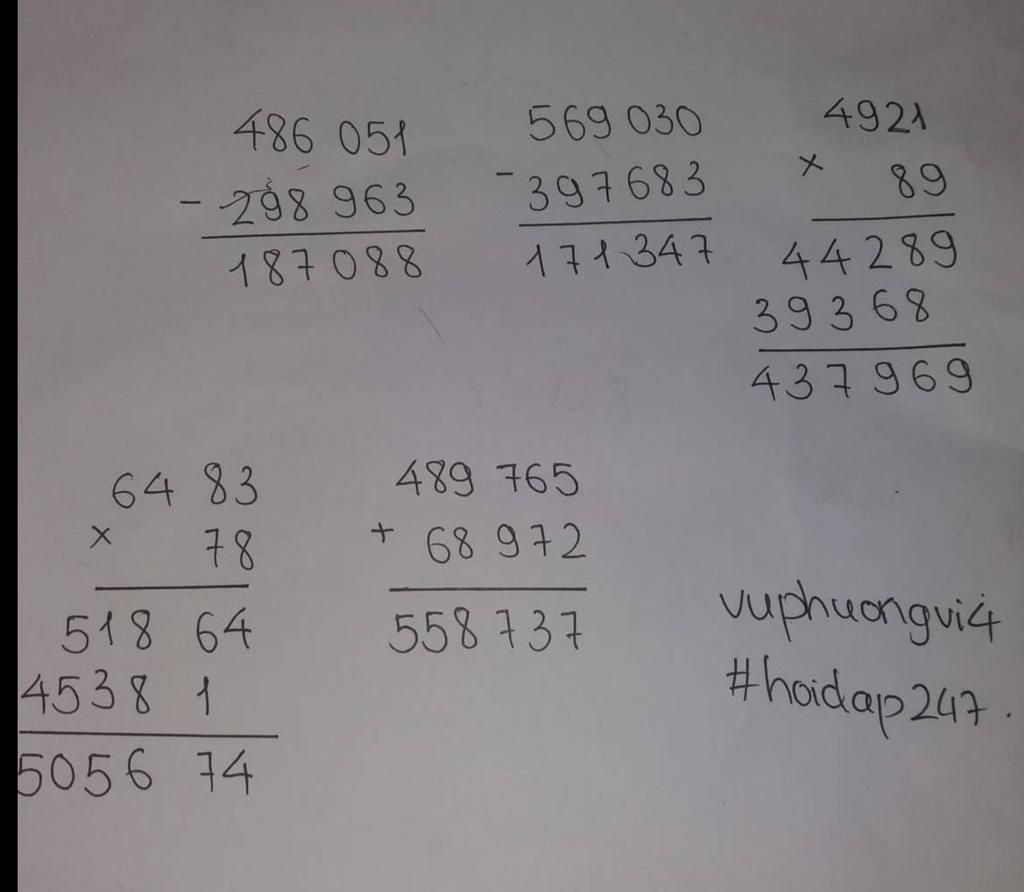 486 051
- 298 963
187088
569 030
- 397683
171347
4921
× 89
44289
39368
437969
64 83
× 78
518 64
4538 1
5056 74
489 765
+ 68 972
558 737
vuphuongvi4
#hoidap247.